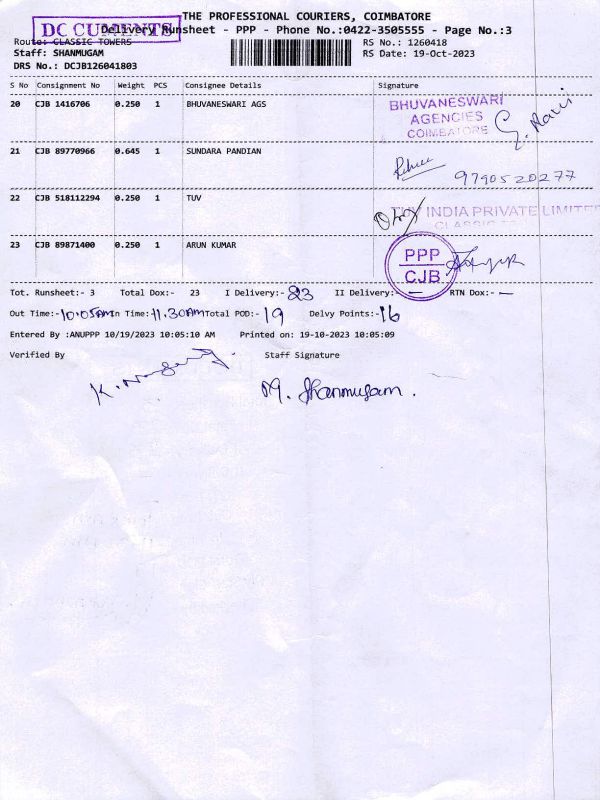 THE PROFESSIONAL COURIERS, COIMBATORE
DOCUMENTS Delivery Runsheet - PPP - Phone No.:0422-3505555 - Page No.:3
Route: CLASSIC TOWERS RS No.: 1260418
Staff: SHANMUGAM RS Date: 19-Oct-2023
DRS No.: DCJB126041803
S No Consignment No Weight PCS Consignee Details Signature
20 CJB 1416706 0.250 1 BHUVANESWARI AGS BHUVANESWARI
AGENCIES
COIMBATORE
G. Ravi
21 CJB 89770966 0.645 1 SUNDARA PANDIAN
9790520277
22 CJB 518112294 0.250 1 TUV TUV INDIA PRIVATE LIMITED
CLASSIC
23 CJB 89871400 0.250 1 ARUN KUMAR PPP
CJB
Tot. Runsheet:- 3 Total Dox:- 23 I Delivery:- 23 II Delivery:- — RTN Dox:- —
Out Time:- 10:05AM In Time: 11.30AM Total POD:- 19 Delvy Points:- 16
Entered By :ANUPPP 10/19/2023 10:05:10 AM Printed on: 19-10-2023 10:05:09
Verified By Staff Signature
M. Shanmugam.